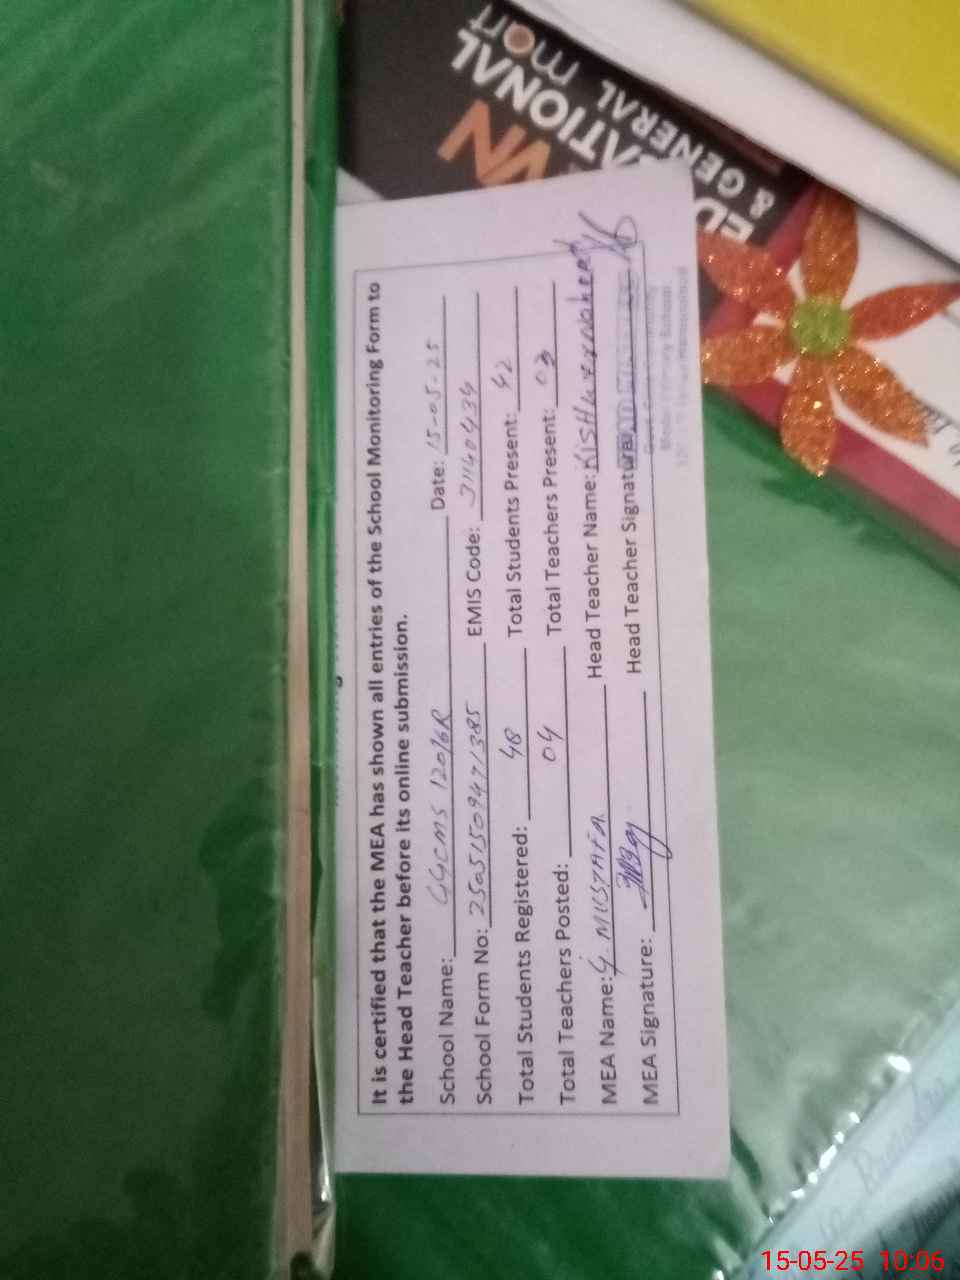 It is certified that the MEA has shown all entries of the School Monitoring Form to
the Head Teacher before its online submission.
School Name: GGCMS 120/6R Date: 15-05-25
School Form No: 25051509471385 EMIS Code: 31140434
Total Students Registered: 48 Total Students Present: 42
Total Teachers Posted: 04 Total Teachers Present: 03
MEA Name: G. MUSTAFA Head Teacher Name: Kishwer naheed
MEA Signature: Head Teacher Signature
mart
ATIONAL
& GENERAL
15-05-25 10:06